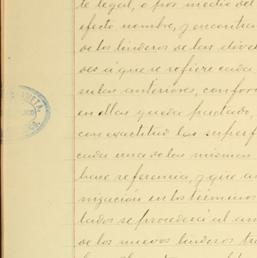 te legal, o por medio del
efecto nombre, y encontra
de los linderos de las dive
des á que se refiere cada
entas anteriores, confor
en ellas queda pactado,
con exactitud las superf
cada una de las mismas
hace referencia, y que an
nización en los términos
tados se procederá al am
de los nuevos linderos tra